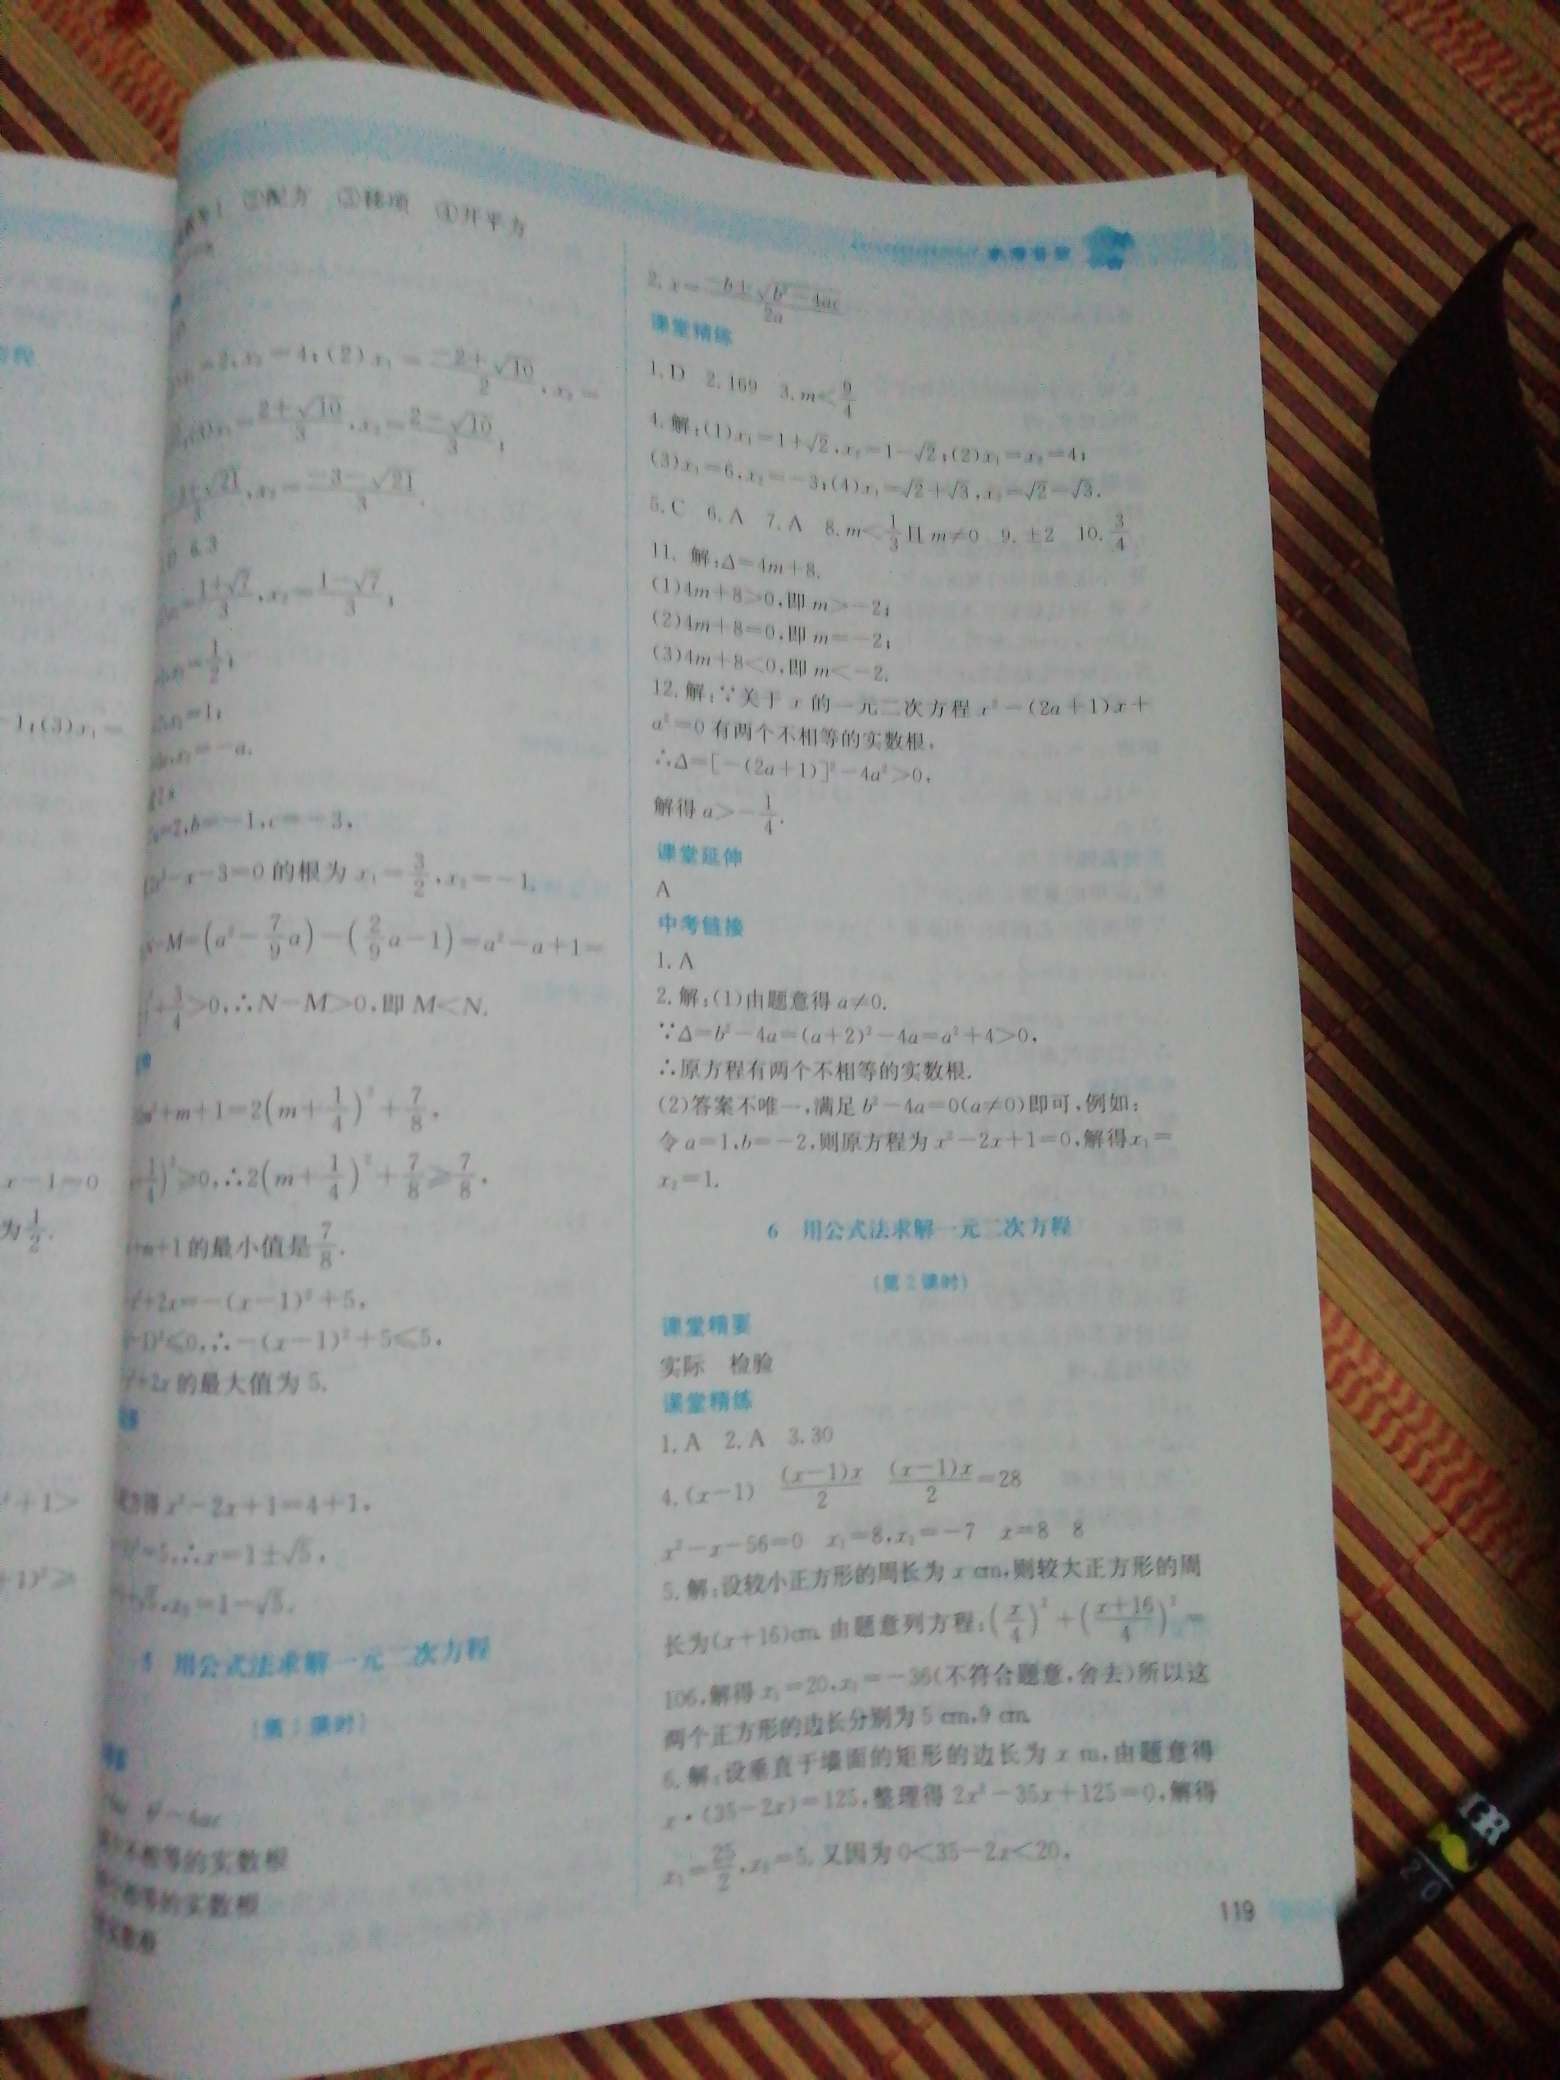 ②配方 ③移项 ④开平方
=2,x₂=4;(2)x₁=\frac{-2+\sqrt{10}}{2},x₂=
=\frac{2+\sqrt{10}}{3},x₂=\frac{2-\sqrt{10}}{3};
x₂=\frac{-3-\sqrt{21}}{3}.
6.3
\frac{1+\sqrt{7}}{3},x₂=\frac{1-\sqrt{7}}{3};
=\frac{1}{2};
=1;
x₂=-a.
=2,b=-1,c=-3,
-x-3=0的根为x₁=\frac{3}{2},x₂=-1.
-M=(a²-\frac{7}{9}a)-(\frac{2}{9}a-1)=a²-a+1=
+\frac{3}{4}>0,∴N-M>0,即M<N.
+m+1=2(m+\frac{1}{4})²+\frac{7}{8},
≥0,∴2(m+\frac{1}{4})²+\frac{7}{8}≥\frac{7}{8},
+m+1的最小值是\frac{7}{8}.
+2x=-(x-1)²+5,
≤0,∴-(x-1)²+5≤5,
+2x的最大值为5.
得x²-2x+1=4+1,
=5,∴x=1±\sqrt{5},
x₂=1-\sqrt{5}.
用公式法求解一元二次方程
(第1课时)
不相等的实数根
相等的实数根
参考答案
2.x=\frac{-b±\sqrt{b²-4ac}}{2a}
课堂精练
1.D 2.169 3.m<\frac{9}{4}
4.解:(1)x₁=1+\sqrt{2},x₂=1-\sqrt{2};(2)x₁=x₂=4;
(3)x₁=6,x₂=-3;(4)x₁=\sqrt{2}+\sqrt{3},x₂=\sqrt{2}-\sqrt{3}.
5.C 6.A 7.A 8.m<\frac{1}{3}且m≠0 9.±2 10.\frac{3}{4}
11.解:Δ=4m+8.
(1)4m+8>0,即m>-2;
(2)4m+8=0,即m=-2;
(3)4m+8<0,即m<-2.
12.解:∵关于x的一元二次方程x²-(2a+1)x+
a²=0有两个不相等的实数根,
∴Δ=[-(2a+1)]²-4a²>0,
解得a>-\frac{1}{4}.
课堂延伸
A
中考链接
1.A
2.解:(1)由题意得a≠0.
∵Δ=b²-4a=(a+2)²-4a=a²+4>0,
∴原方程有两个不相等的实数根.
(2)答案不唯一,满足b²-4a=0(a≠0)即可,例如:
令a=1,b=-2,则原方程为x²-2x+1=0,解得x₁=
x₂=1.
6 用公式法求解一元二次方程
(第2课时)
课堂精要
实际 检验
课堂精练
1.A 2.A 3.30
4.(x-1) \frac{(x-1)x}{2} \frac{(x-1)x}{2}=28
x²-x-56=0 x₁=8,x₂=-7 x=8 8
5.解:设较小正方形的周长为x cm,则较大正方形的周
长为(x+16)cm.由题意列方程:(\frac{x}{4})²+(\frac{x+16}{4})²=
106,解得x₁=20,x₂=-36(不符合题意,舍去)所以这
两个正方形的边长分别为5 cm,9 cm.
6.解:设垂直于墙面的矩形的边长为x m,由题意得
x·(35-2x)=125,整理得2x²-35x+125=0,解得
x₁=\frac{25}{2},x₂=5.又因为0<35-2x<20,
119
-1;(3)x₁=
x-1=0
为\frac{1}{2}.
+1>